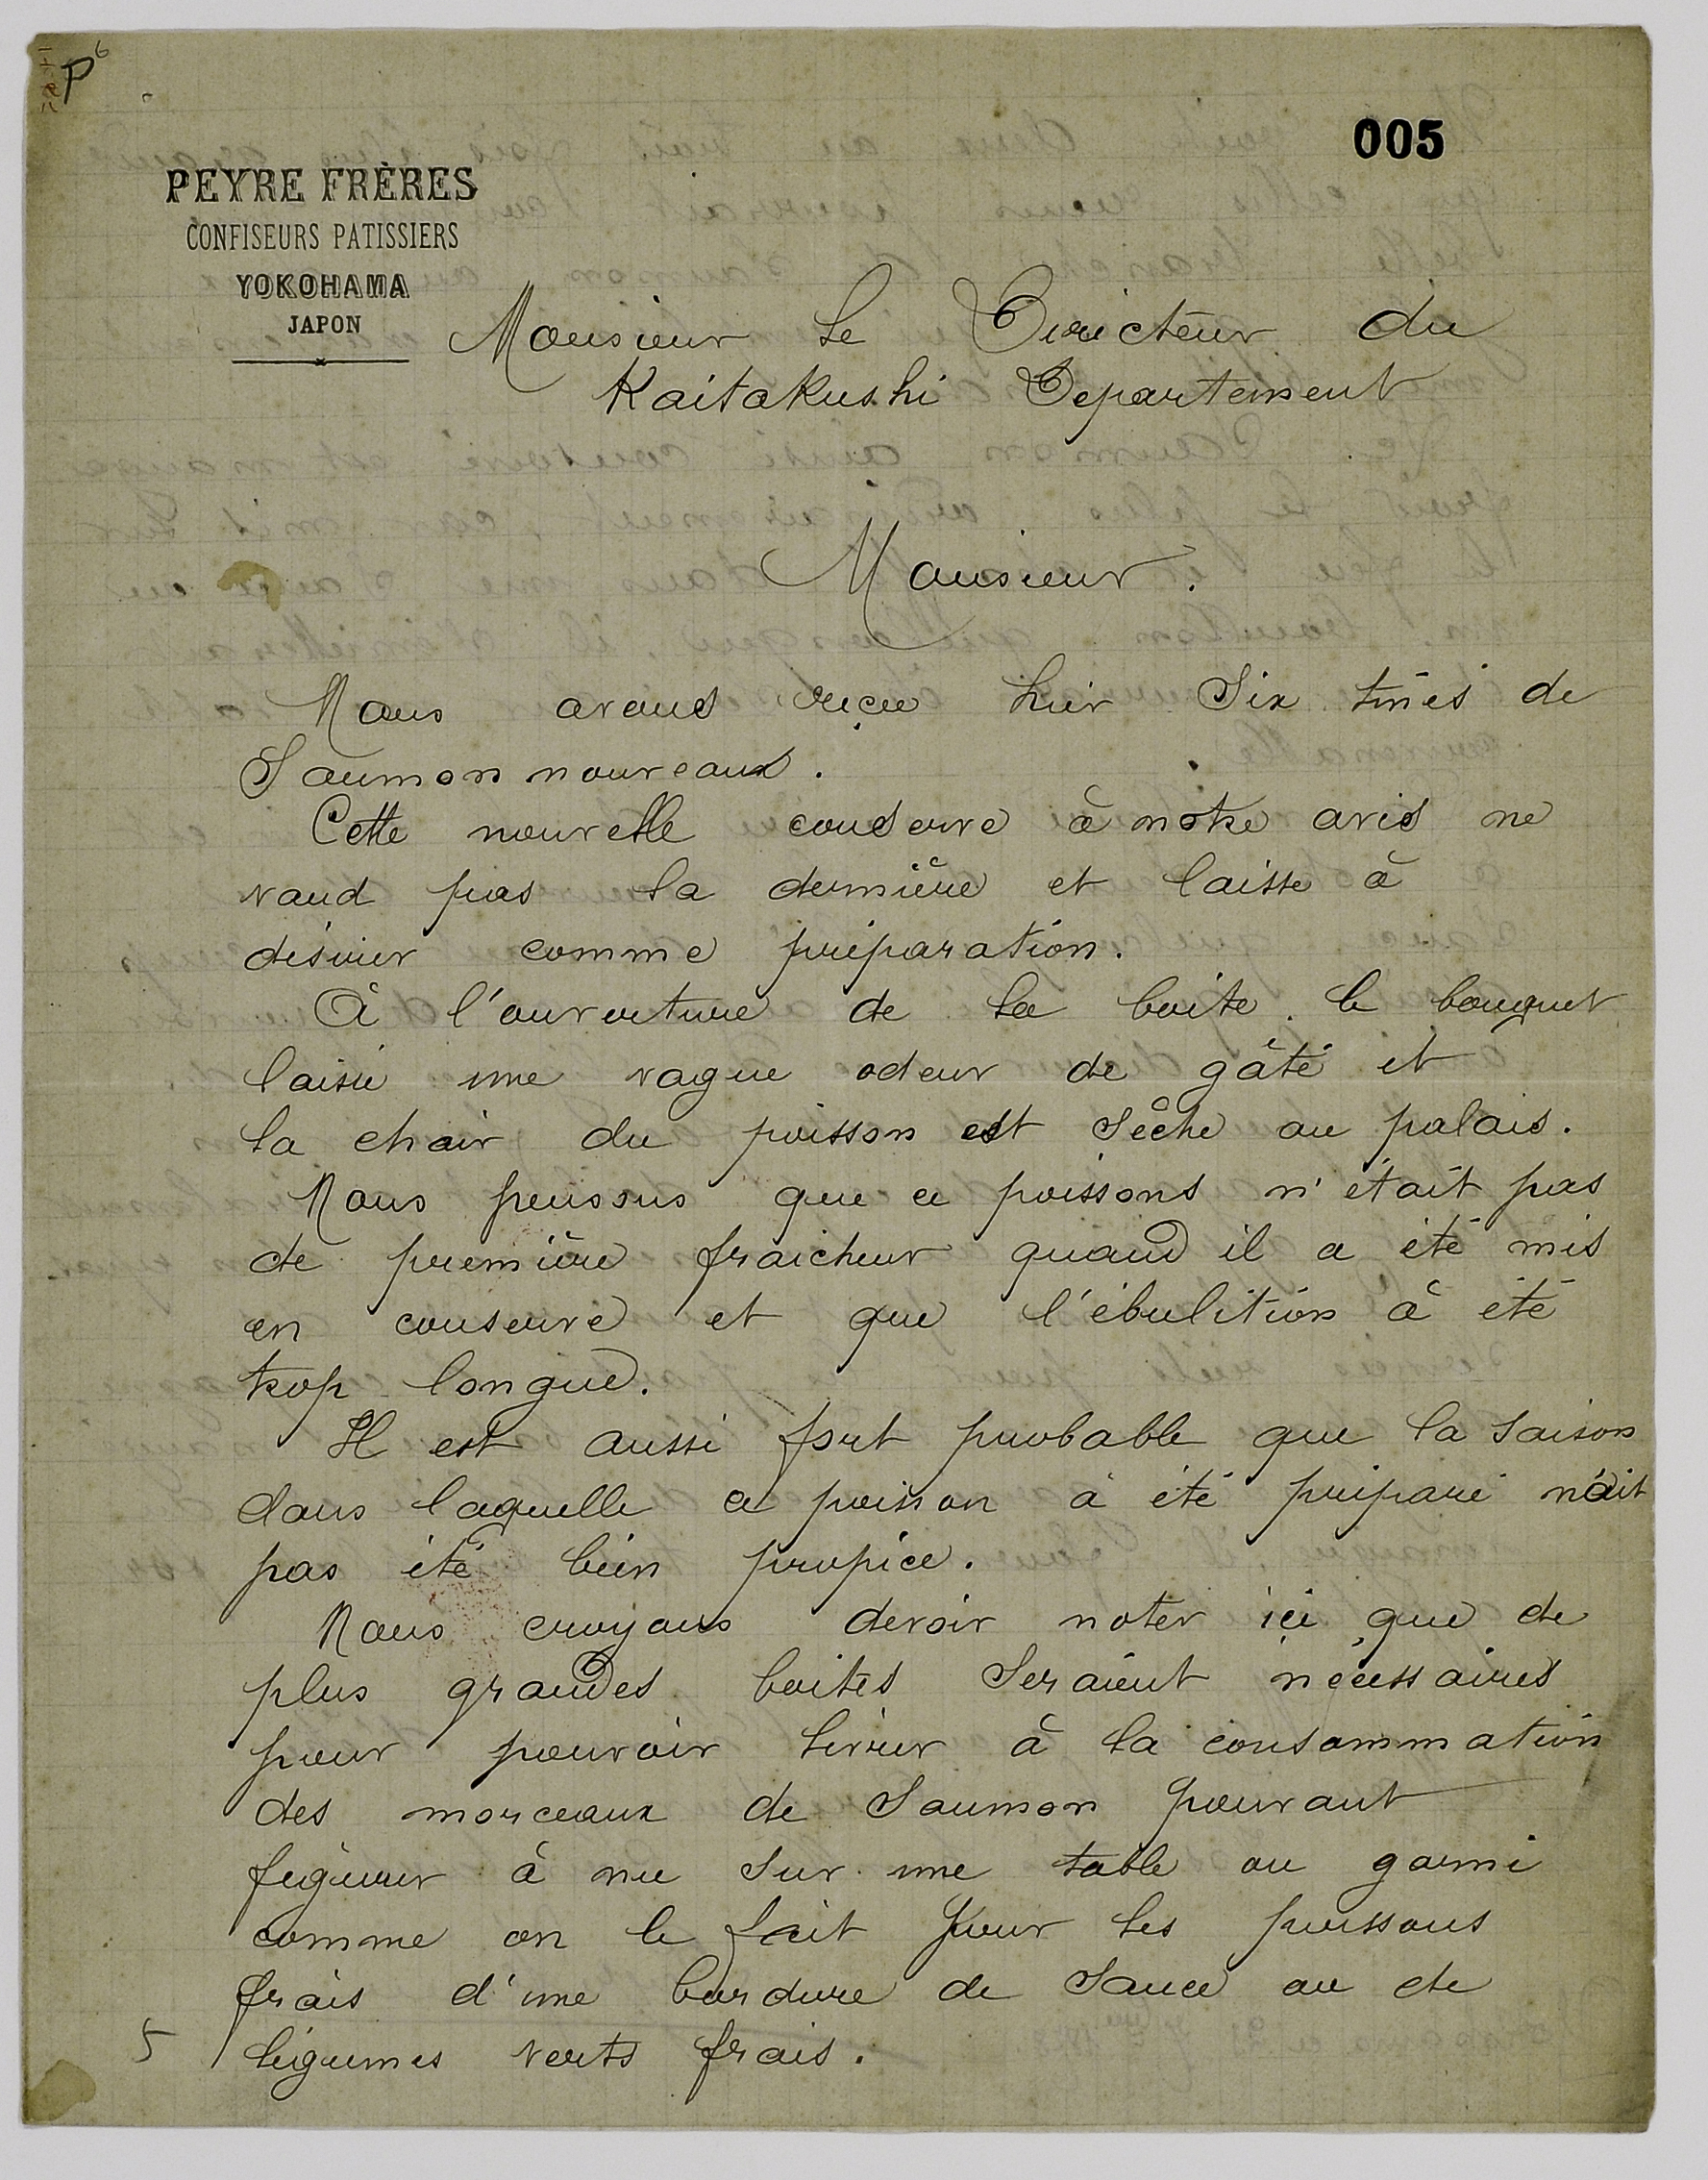 P6
005
PEYRE FRÈRES
CONFISEURS PATISSIERS
YOKOHAMA
JAPON
Monsieur le Directeur du
Kaitakushi Departement
Monsieur.
Nous avons reçu hier Six tines de
Saumon nouveaux.
Cette nouvelle conserve à notre avis ne
vaud pas la dernière et laisse à
désirer comme préparation.
À l'ouverture de la boite le bouquet
laisse une vague odeur de gâté et
la chair du poisson est sèche au palais.
Nous pensons que ce poissons n'était pas
de première fraicheur quand il a été mis
en conserve et que l'ébulition à été
trop longue.
Il est aussi fort probable que la saison
dans laquelle ce poisson à été préparé n'ait
pas été bien propice.
Nous croyons devoir noter içi que de
plus grandes boites seraient nécessaires
pour pouvoir livrer à la consommation
des morceaux de Saumon pouvant
figurer à nu sur une table ou garni
comme on le fait pour les poissons
frais d'une bordure de sauce ou de
5 légumes verts frais.